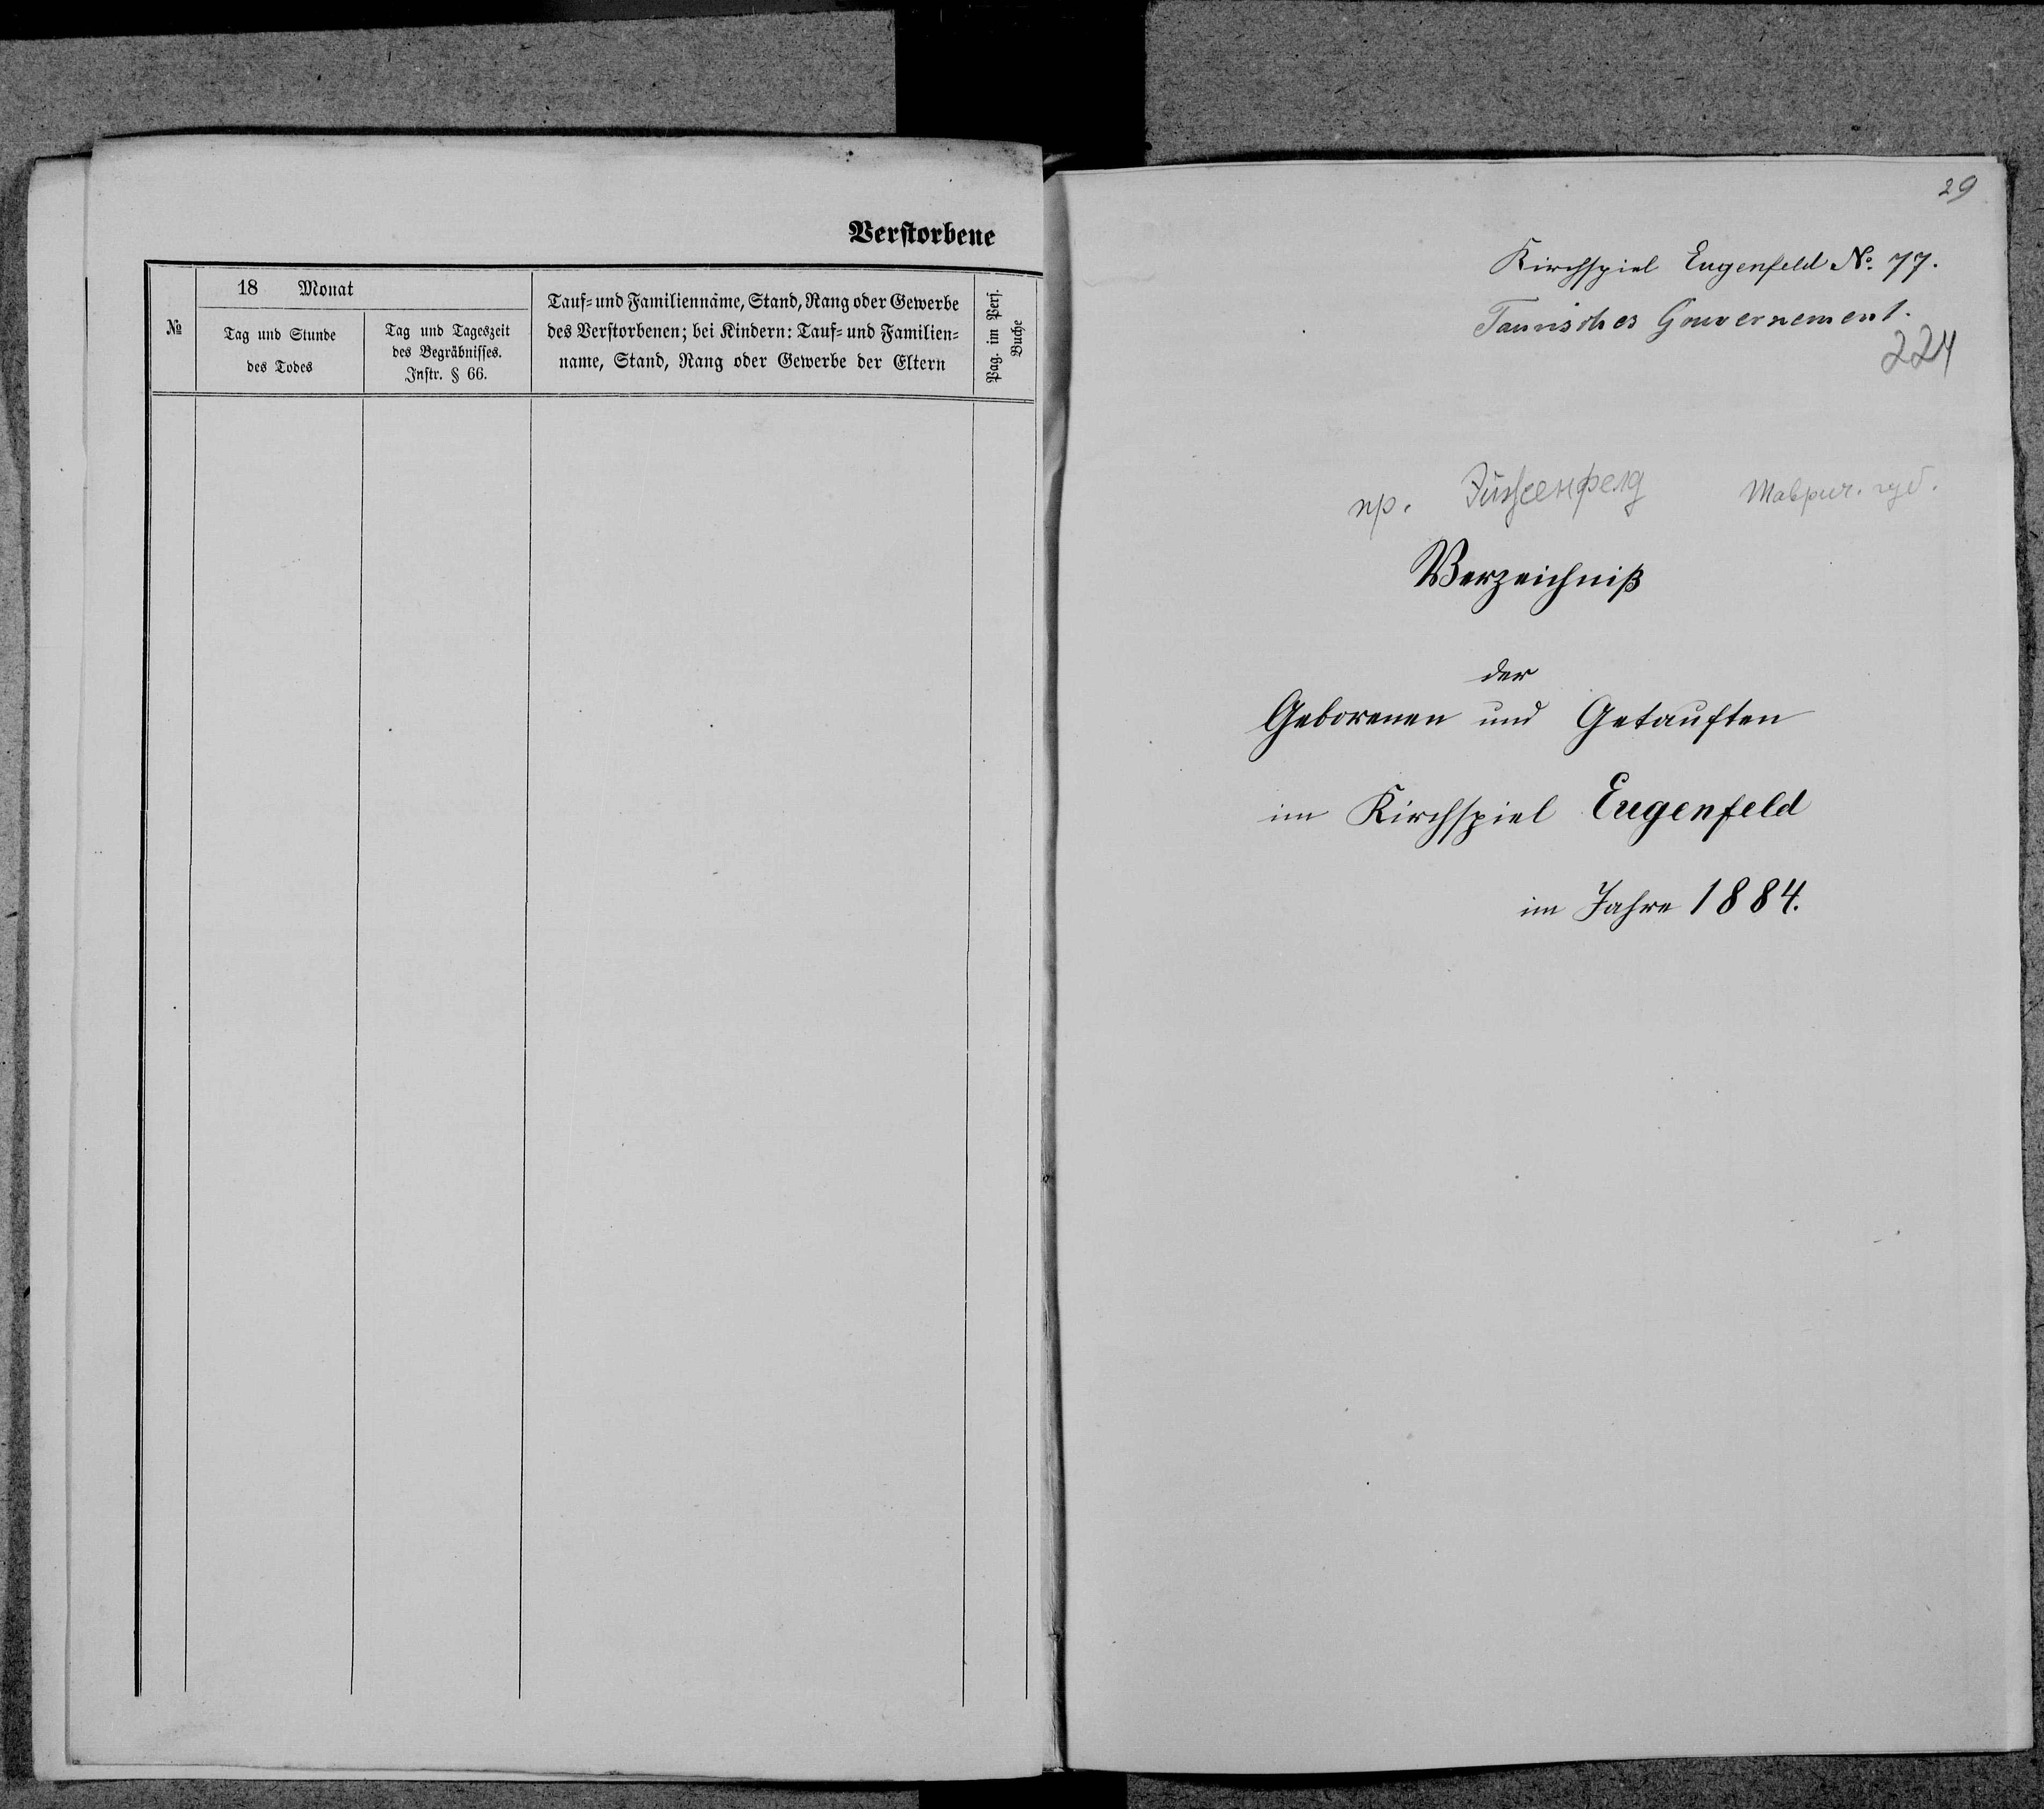 Verstorbene
№
18 Monat
Tag und Stunde
des Todes
Tag und Tageszeit
des Begräbnisses.
Instr. § 66.
Tauf= und Familienname, Stand, Rang oder Gewerbe
des Verstorbenen; bei Kindern: Tauf= und Familien=
name, Stand, Rang oder Gewerbe der Eltern
Pag. im Pers.
Buche
29
Kirchspiel Eugenfeld №. 77.
Taurisches Gouvernement.
224
пр. Таврич. губ.
Verzeichniß
der
Geborenen und Getauften
im Kirchspiel Eugenfeld
im Jahre 1884.